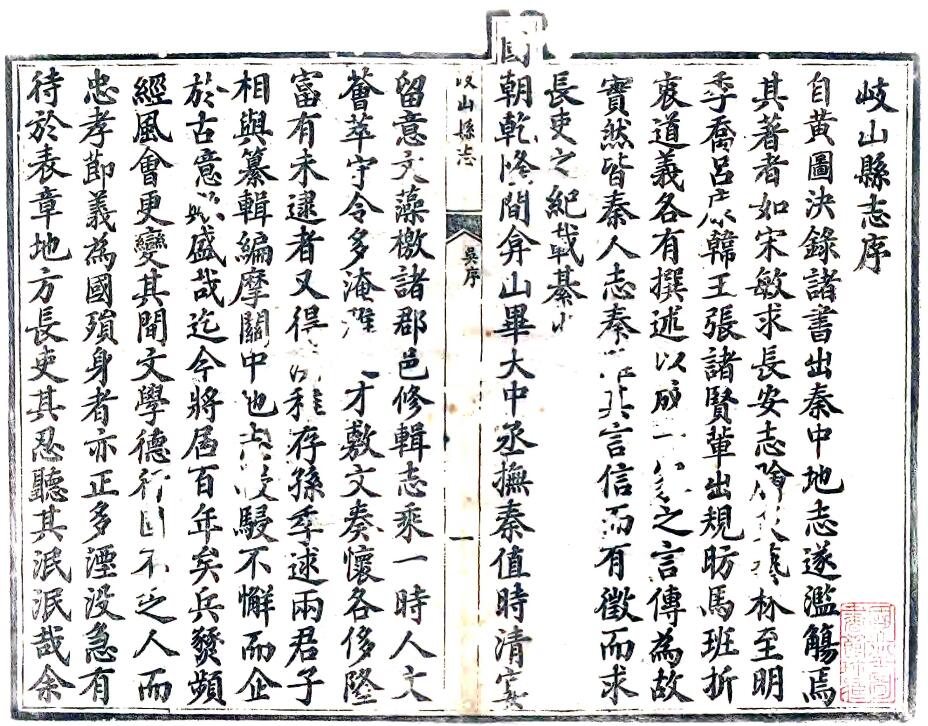 岐山縣志序
自黃圖決錄諸書出秦中地志遂濫觴焉
其著者如宋敏求長安志 林至明
季喬呂 韓王張諸賢輩出規昉馬班折
衷道義各有撰述以成一 之言傳為故
實然皆秦人志秦 其言信而有徵而求
長吏之紀載綦
國朝乾隆間弇山畢大中丞撫秦值時清寧
岐山縣志
吳序
一
留意文藻檄諸郡邑修輯志乘一時人文
薈萃守令多淹雅 才敷文奏懷各侈隆
富有未逮者又得 稚存孫季逑兩君子
相與纂輯編摩關中地 駸駸不懈而企
於古意 盛哉迄今將屆百年矣兵燹頻
經風會更變其間文學德行 不 之人而
忠孝節義為國殞身者亦正多湮沒急有
待於表章地方長吏其忍聽其泯泯哉余